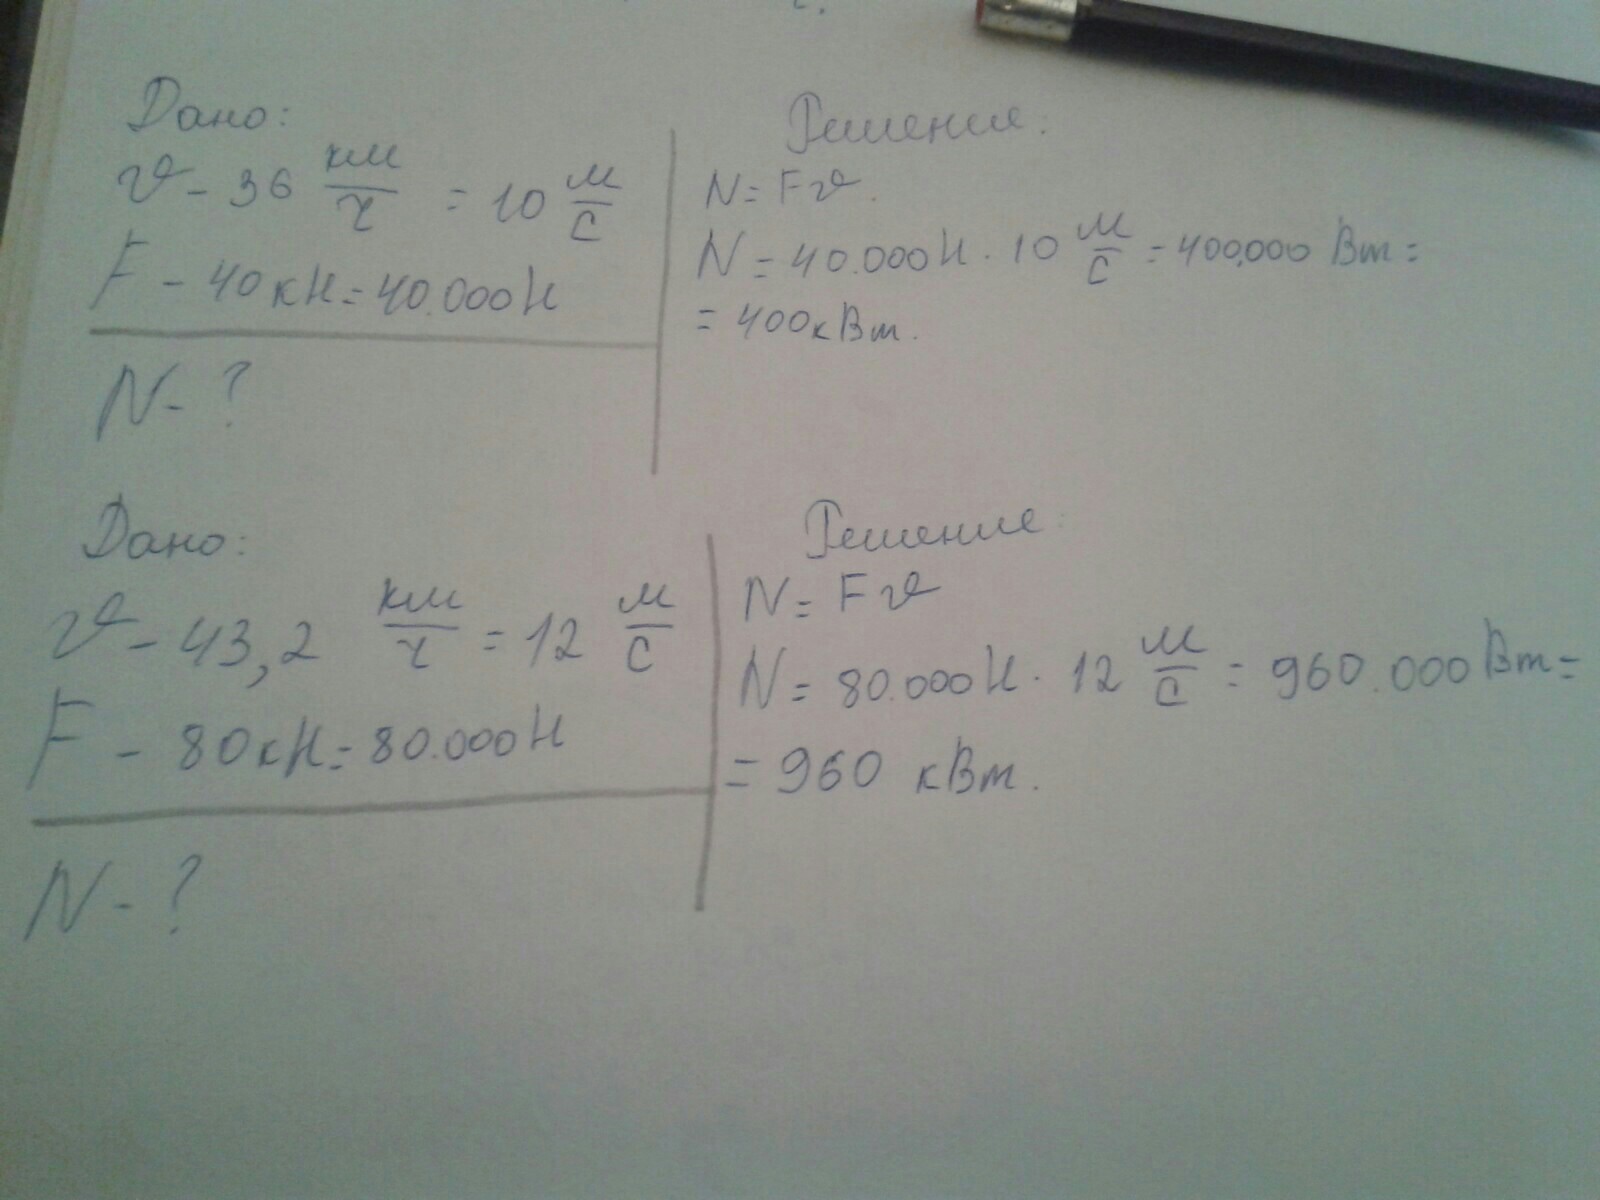 Дано:
v - 36 км/ч = 10 м/с
F - 40 кН = 40.000 Н
N - ?
Решение:
N = Fv.
N = 40.000 Н · 10 м/с = 400.000 Вт =
= 400 кВт.
Дано:
v - 43,2 км/ч = 12 м/с
F - 80 кН = 80.000 Н
N - ?
Решение:
N = Fv
N = 80.000 Н · 12 м/с = 960.000 Вт =
= 960 кВт.